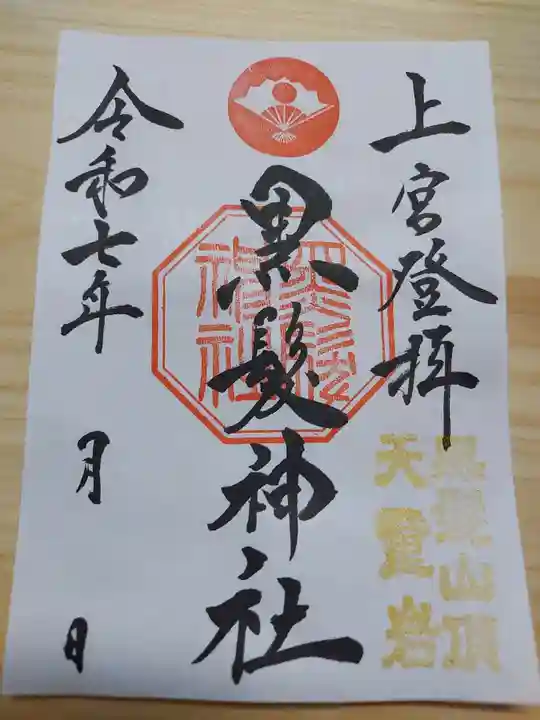 上宮登拝
黒髪山頂
天童岩
黒髪神社
黒髪神社
令和七年
月
日